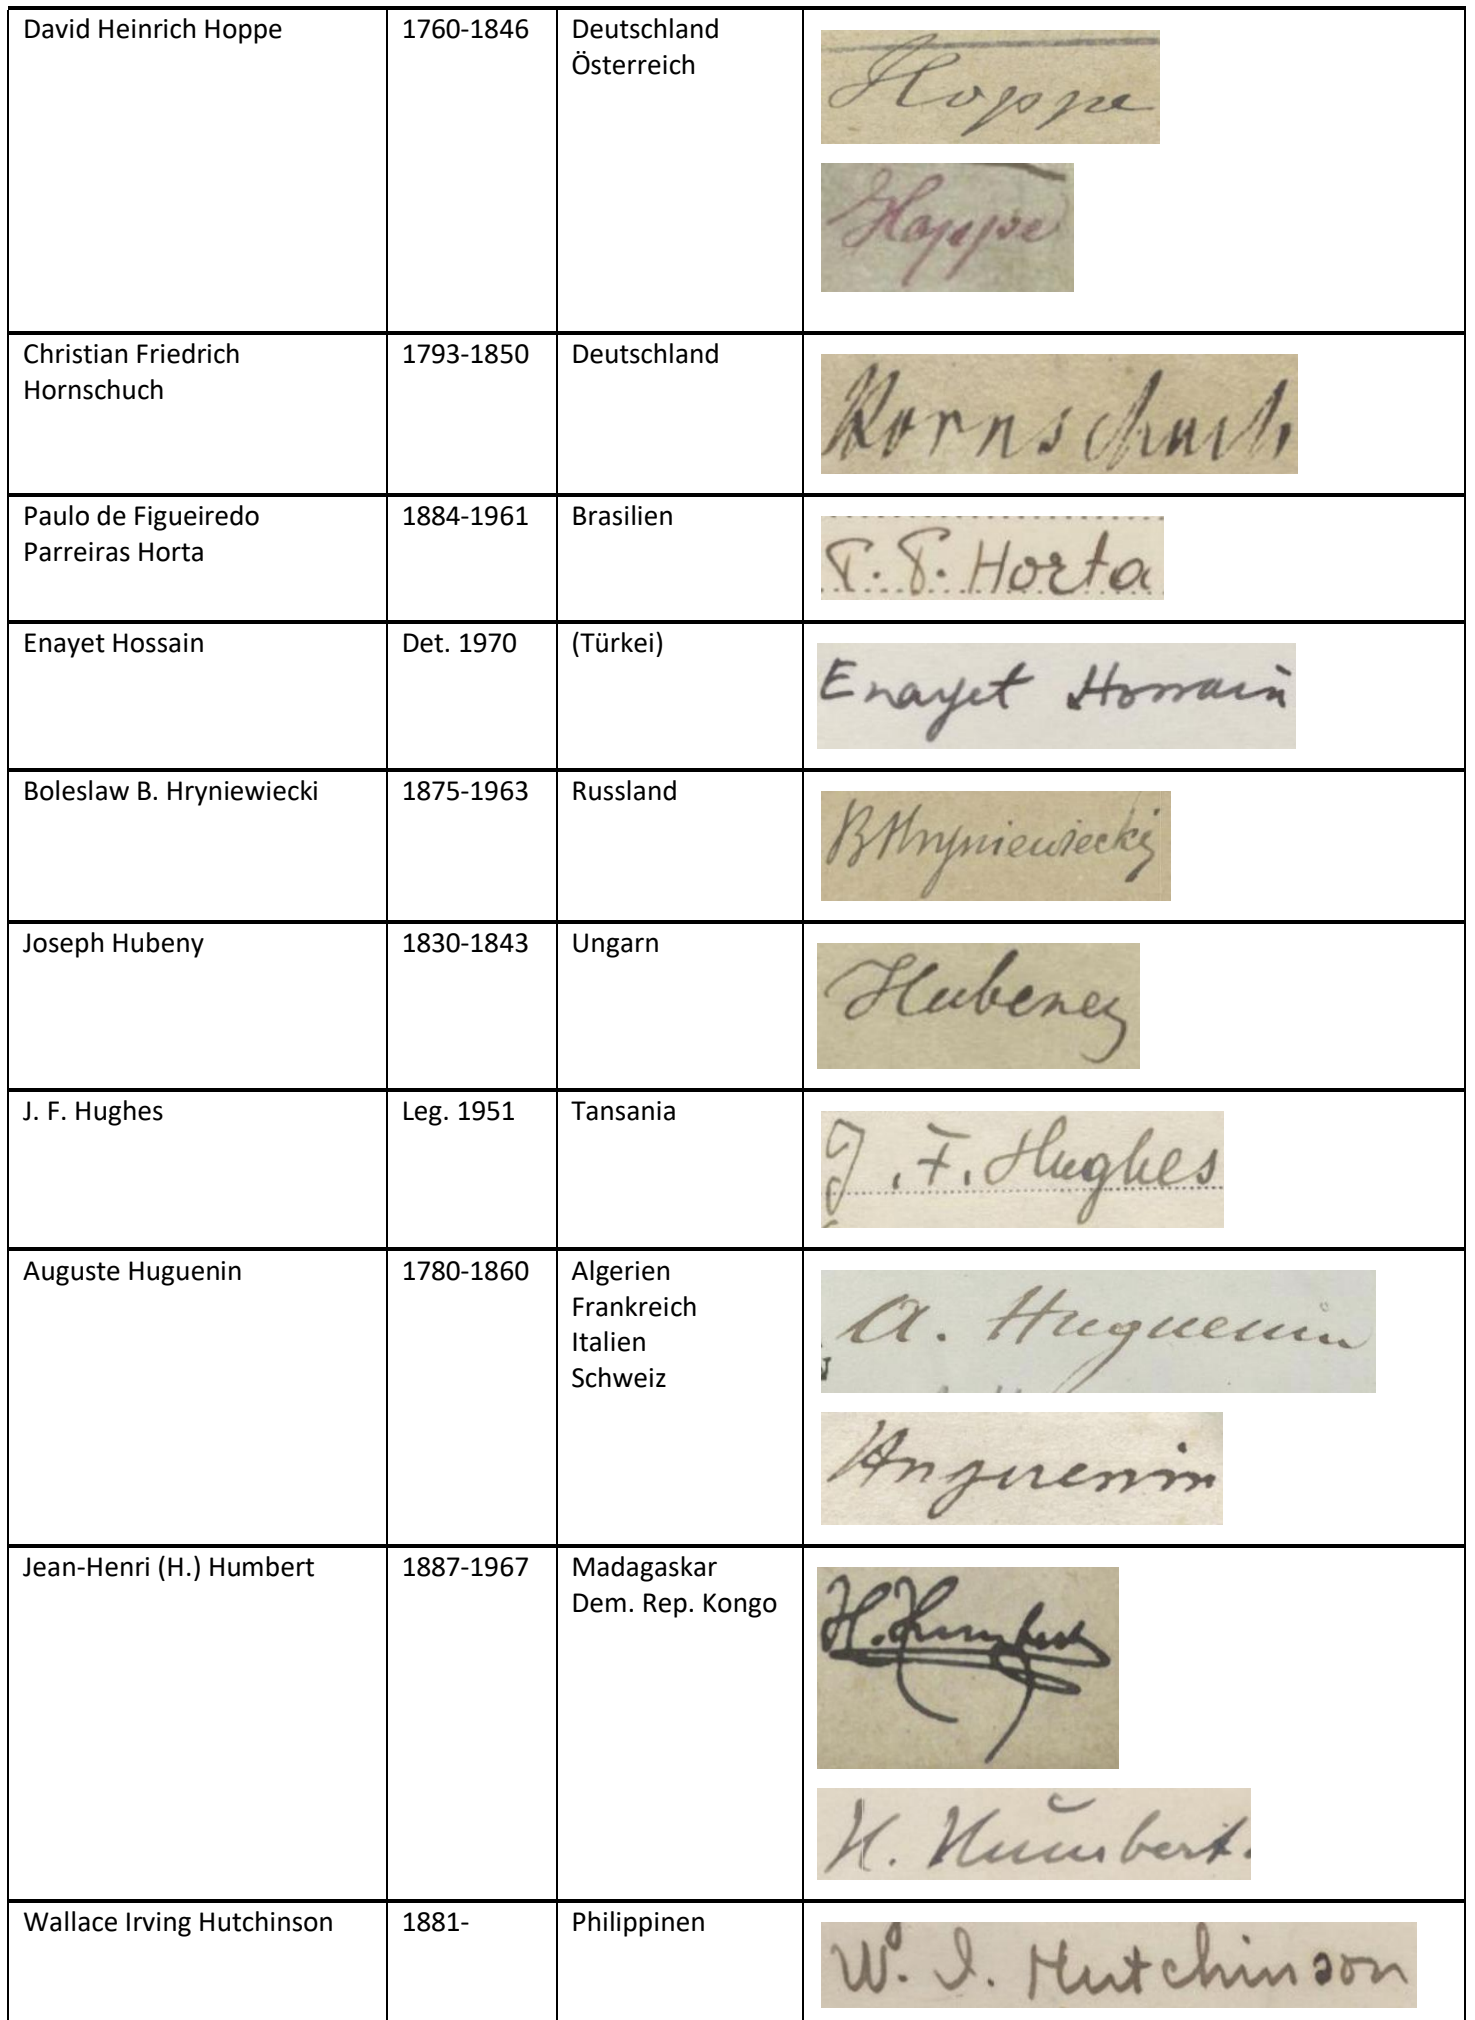 David Heinrich Hoppe 1760-1846 Deutschland
Österreich
Hoppe
Hoppe
Christian Friedrich 1793-1850 Deutschland
Hornschuch
Hornschuch
Paulo de Figueiredo 1884-1961 Brasilien
Parreiras Horta
P. P. Horta
Enayet Hossain Det. 1970 (Türkei)
Enayet Hossain
Boleslaw B. Hryniewiecki 1875-1963 Russland
B Hryniewiecki
Joseph Hubeny 1830-1843 Ungarn
Hubeney
J. F. Hughes Leg. 1951 Tansania
J. F. Hughes
Auguste Huguenin 1780-1860 Algerien
Frankreich
Italien
Schweiz
A. Huguenin
Huguenin
Jean-Henri (H.) Humbert 1887-1967 Madagaskar
Dem. Rep. Kongo
H. Humbert
H. Humbert.
Wallace Irving Hutchinson 1881- Philippinen
W. I. Hutchinson